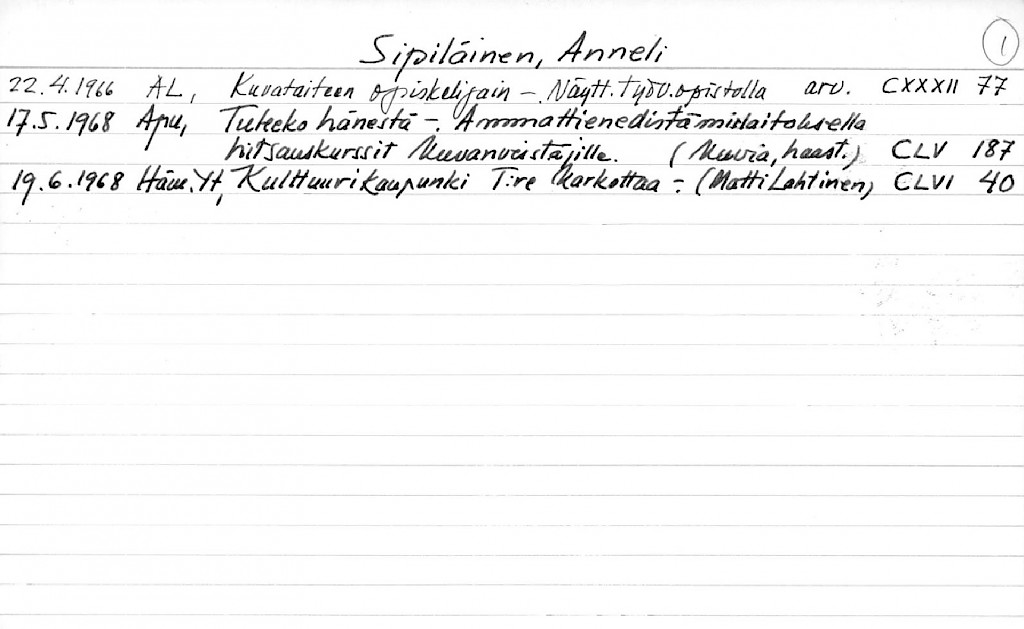 Sipiläinen, Anneli 1
22.4.1966 AL, Kuvataiteen opiskelijain -. Näytt. Työv.opistolla arv. CXXXII 77
17.5.1968 Apu, Tuleeko hänestä -. Ammattienedistämislaitoksella
hitsauskurssit kuvanveistäjille. (kuvia, haast.) CLV 187
19.6.1968 Häm.Yt, Kulttuurikaupunki T:re karkottaa -. (Matti Lahtinen) CLVI 40